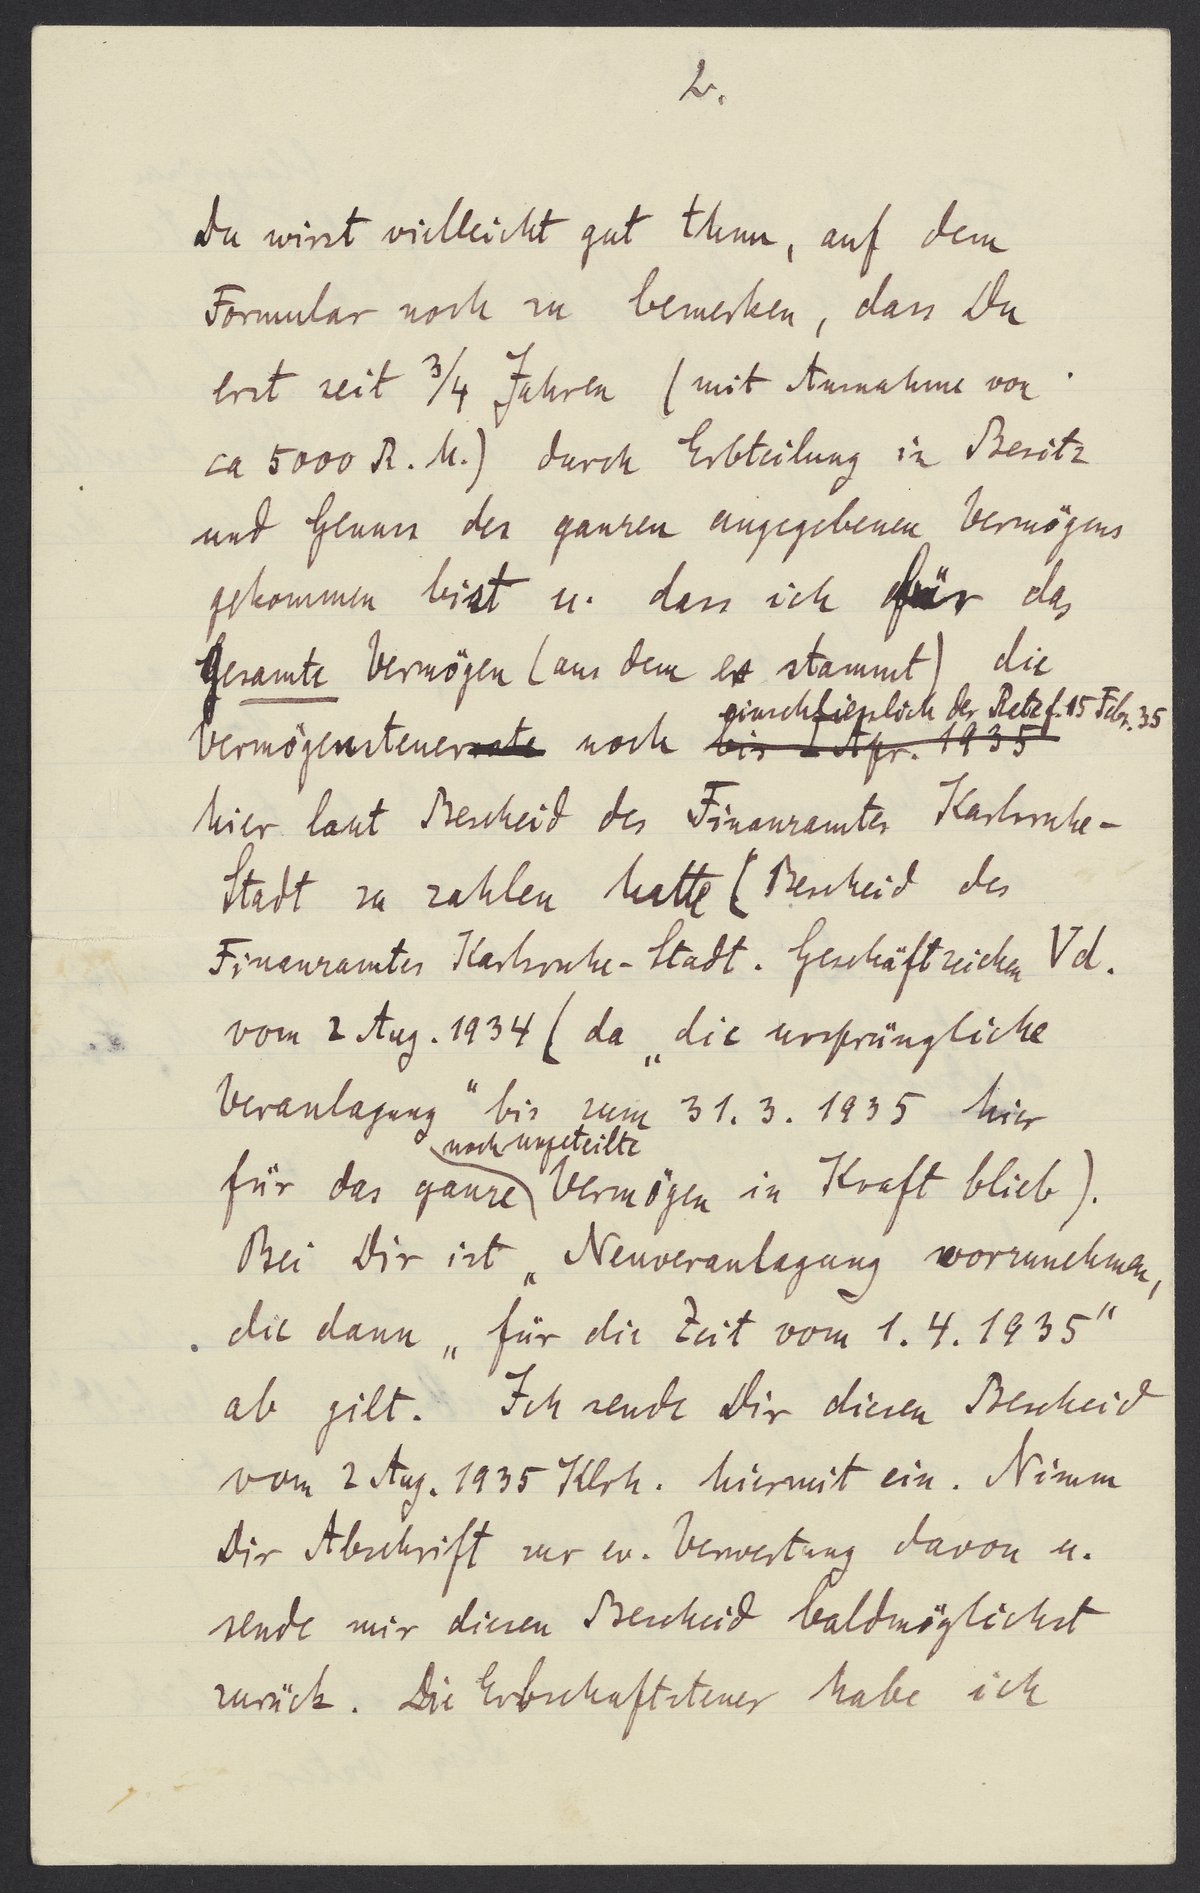 2.
Du wirst vielleicht gut thun, auf dem
Formular noch zu bemerken, dass Du
erst seit 3/4 Jahren (mit Ausnahme von
ca 5000 R. M.) durch Erbteilung in Besitz
und Genuss des ganzen angegebenen Vermögens
gekommen bist u. dass ich für das
Gesamte Vermögen (aus dem es stammt) die
einschliesslich der Rate f. 15 Febr. 35
Vermögenssteuerrate noch bis 1 Apr. 1935
hier laut Bescheid des Finanzamtes Karlsruhe-
Stadt zu zahlen hatte (Bescheid des
Finanzamtes Karlsruhe-Stadt. Geschäftzeichen Vd.
vom 2 Aug. 1934 (da „die ursprüngliche
Veranlagung" bis zum 31. 3. 1935 hier
noch ungeteilte
für das ganze Vermögen in Kraft blieb).
Bei Dir ist „Neuveranlagung vorzunehmen,
die dann „für die Zeit vom 1. 4. 1935"
ab gilt. Ich sende Dir diesen Bescheid
vom 2 Aug. 1935 Klrh. hiermit ein. Nimm
Dir Abschrift zur ev. Verwertung davon u.
sende mir diesen Bescheid baldmöglichst
zurück. Die Erbschaftsteuer habe ich